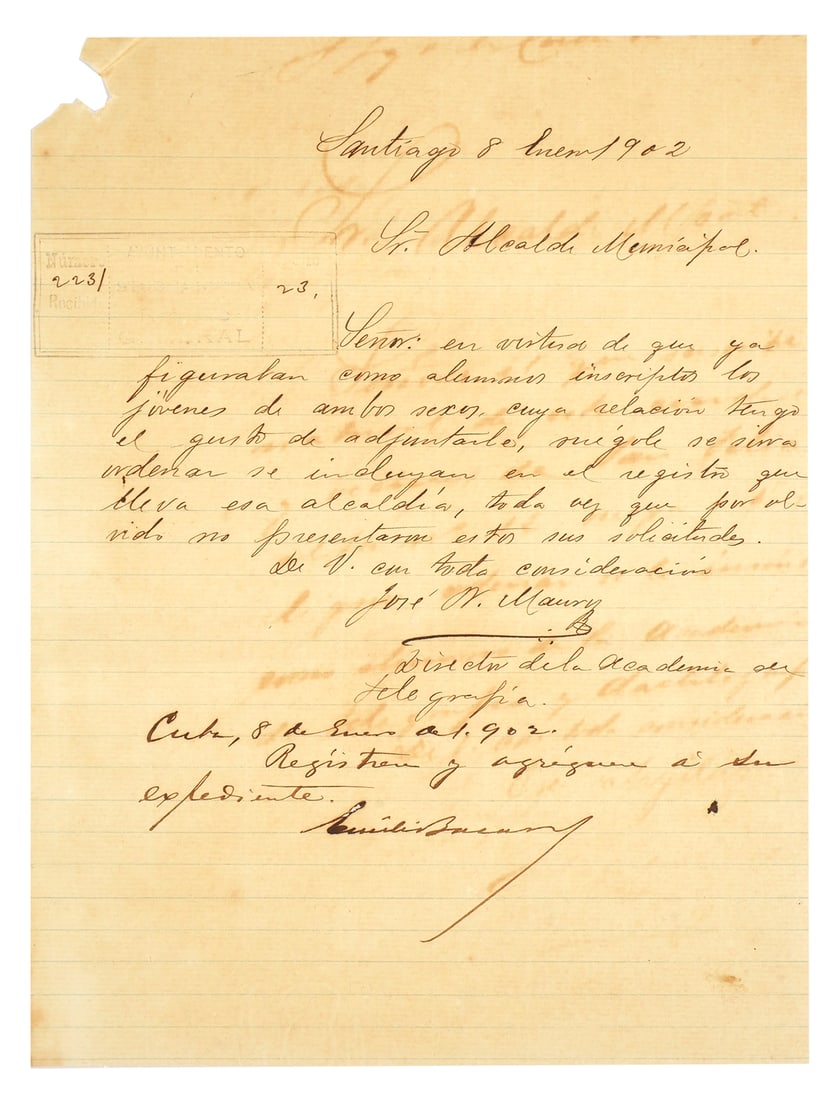 Santiago 8 Enero 1902
Sr. Alcalde Municipal.
Número
2231
23.
Recibido
Señor: en virtud de que ya
figuraban como alumnos inscriptos los
jóvenes de ambos sexos, cuya relación tengo
el gusto de adjuntarle, ruégole se sirva
ordenar se incluyan en el registro que
lleva esa alcaldía, toda vez que por ol-
vido no presentaron estos sus solicitudes.
De V. con toda consideración
José N. Maury
Director de la Academia de
telegrafía.
Cuba, 8 de Enero de 1.902.
Regístrese y agréguese á su
expediente.
Emilio Bacardí